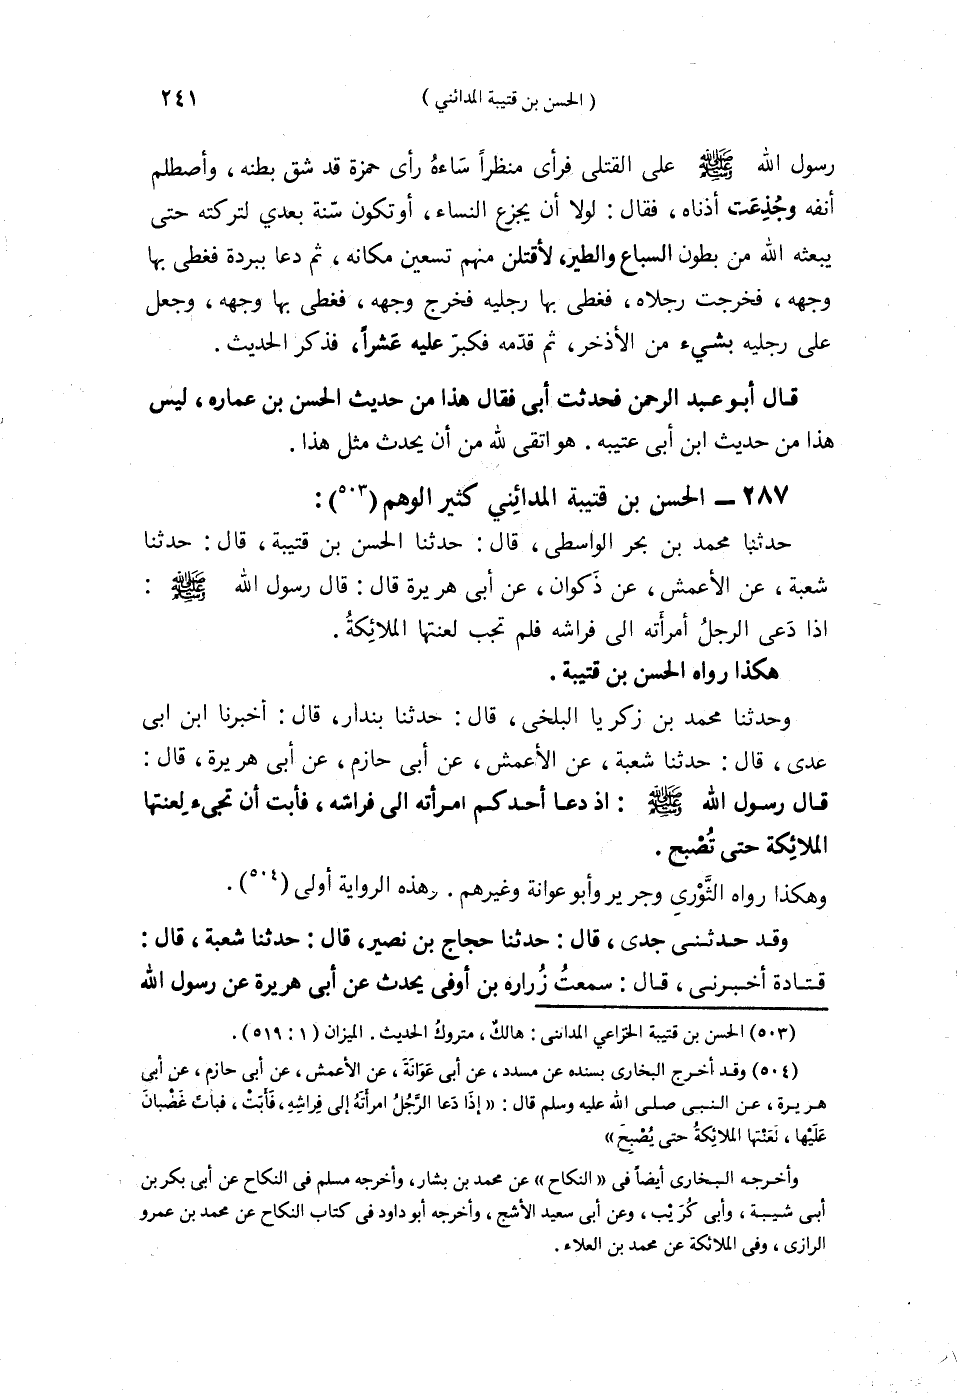 ( الحسن بن قتيبة المدائني ) ٢٤١
رسول الله ﷺ على القتلى فرأى منظراً سَاءهُ رأى حمزة قد شق بطنه ، وأصطلم
أنفه وجُذِعَت أذناه ، فقال : لولا أن يجزع النساء ، أوتكون سّنة بعدي لتركته حتى
يبعثه الله من بطون السباع والطير، لأقتلن منهم تسعين مكانه ، ثم دعا ببردة فغطى بها
وجهه ، فخرجت رجلاه ، فغطى بها رجليه فخرج وجهه ، فغطى بها وجهه ، وجعل
على رجليه بشيء من الأذخر، ثم قدّمه فكبرّ عليه عَشراً، فذكر الحديث .
قال أبو عبد الرحمن فحدثت أبى فقال هذا من حديث الحسن بن عماره ، ليس
هذا من حديث ابن أبى عتيبه . هو اتقى لله من أن يحدث مثل هذا .
٢٨٧ ــ الحسن بن قتيبة المدائِني كثير الوهم (٥٠٣) :
حدثنا محمد بن بحر الواسطى ، قال : حدثنا الحسن بن قتيبة ، قال : حدثنا
شعبة ، عن الأعمش ، عن ذَكوان ، عن أبى هريرة قال : قال رسول الله ﷺ :
اذا دَعى الرجلُ أمرأَته الى فراشه فلم تجب لعنتها الملائِكةُ .
هكذا رواه الحسن بن قتيبة .
وحدثنا محمد بن زكريا البلخى ، قال : حدثنا بندار، قال : أخبرنا ابن ابى
عدى ، قال : حدثنا شعبة ، عن الأعمش ، عن أبى حازم ، عن أبى هريرة ، قال :
قال رسول الله ﷺ : اذ دعا أحدكم امرأته الى فراشه ، فأبت أن تجىء لعنتها
الملائِكة حتى تُصْبح .
وهكذا رواه الثَّوْرِي وجرير وأبو عوانة وغيرهم . وهذه الرواية أولى (٥٠٤) .
وقد حدثنى جدى ، قال : حدثنا حجاج بن نصير، قال : حدثنا شعبة ، قال :
قتادة أخبرنى ، قال : سمعتُ زُراره بن أوفى يحدث عن أبى هريرة عن رسول الله
(٥٠٣) الحسن بن قتيبة الخزاعي المدائنى : هالكٌ ، متروكُ الحديث . الميزان (١ : ٥١٩) .
(٥٠٤) وقد أخرج البخارى بسنده عن مسدد ، عن أبى عَوَانَةَ ، عن الأعمش ، عن أبى حازم ، عن أبى
هريرة ، عن النبى صلى الله عليه وسلم قال : « إذَا دَعَا الرَّجُلُ امرأتَهُ إلى فِراشِهِ ، فَأبَتْ ، فباتَ غَضْبانَ
عَلَيْها ، لَعَنْتها الملائِكةُ حتى يُصْبِحَ »
وأخرجه البخارى أيضاً فى « النكاح » عن محمد بن بشار، وأخرجه مسلم فى النكاح عن أبى بكر بن
أبى شيبة ، وأبى كُرَيْب ، وعن أبى سعيد الأشج ، وأخرجه أبو داود فى كتاب النكاح عن محمد بن عمرو
الرازى ، وفى الملائكة عن محمد بن العلاء .